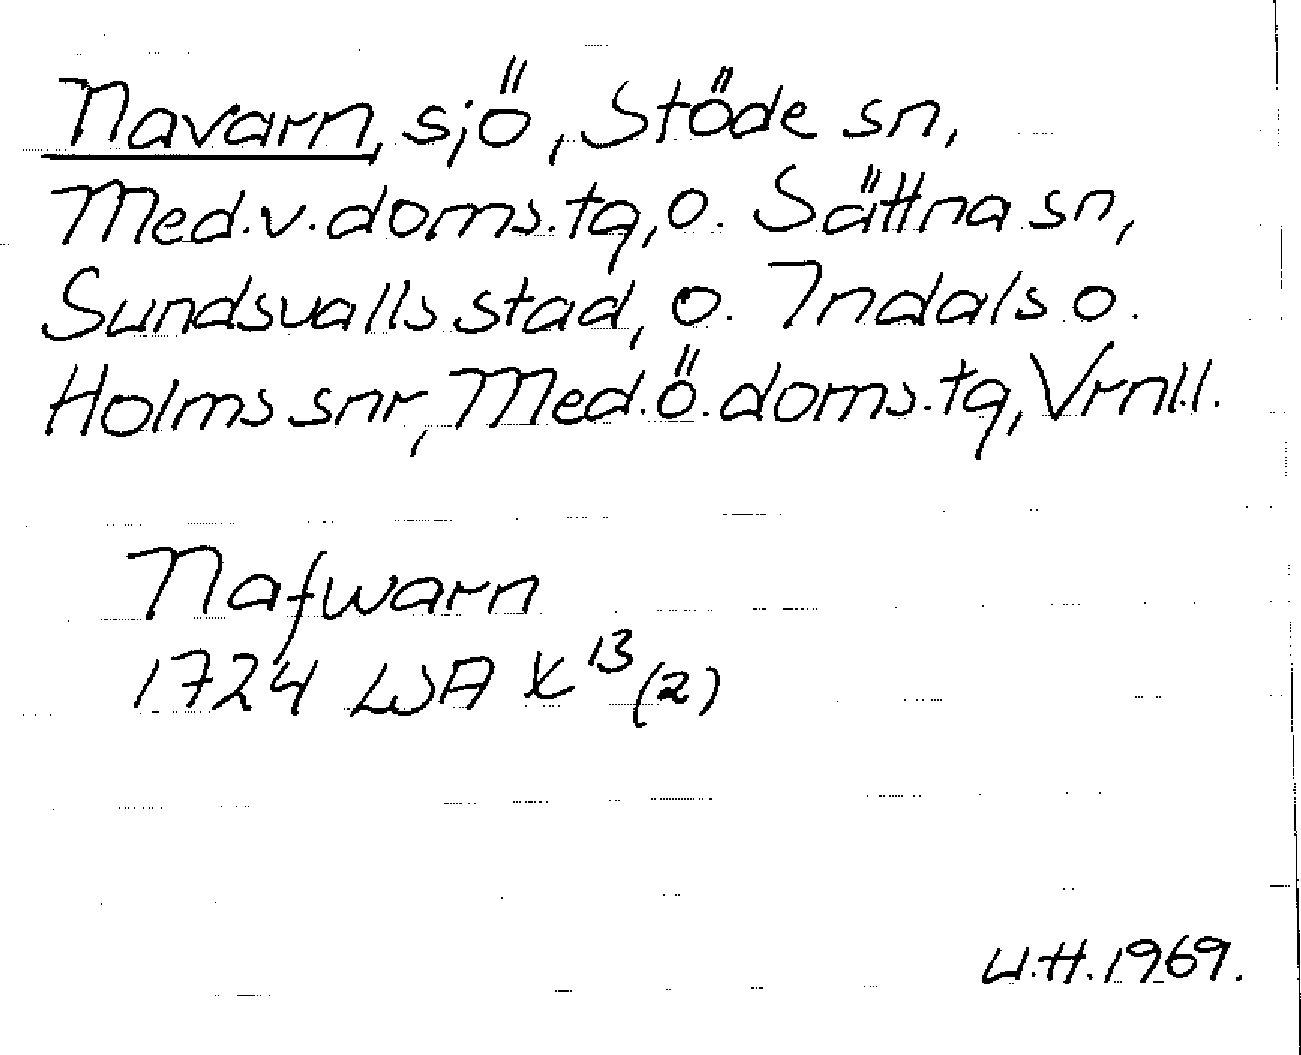 Navarn, sjö, Stöde sn,
Med.v.doms.tg, o. Sättna sn,
Sundsvalls stad, o. Indals o.
Holms snr, Med.ö.doms.tg, Vrnl.l.
Nafwarn
1724 LSA X¹³(2)
U.H. 1969.